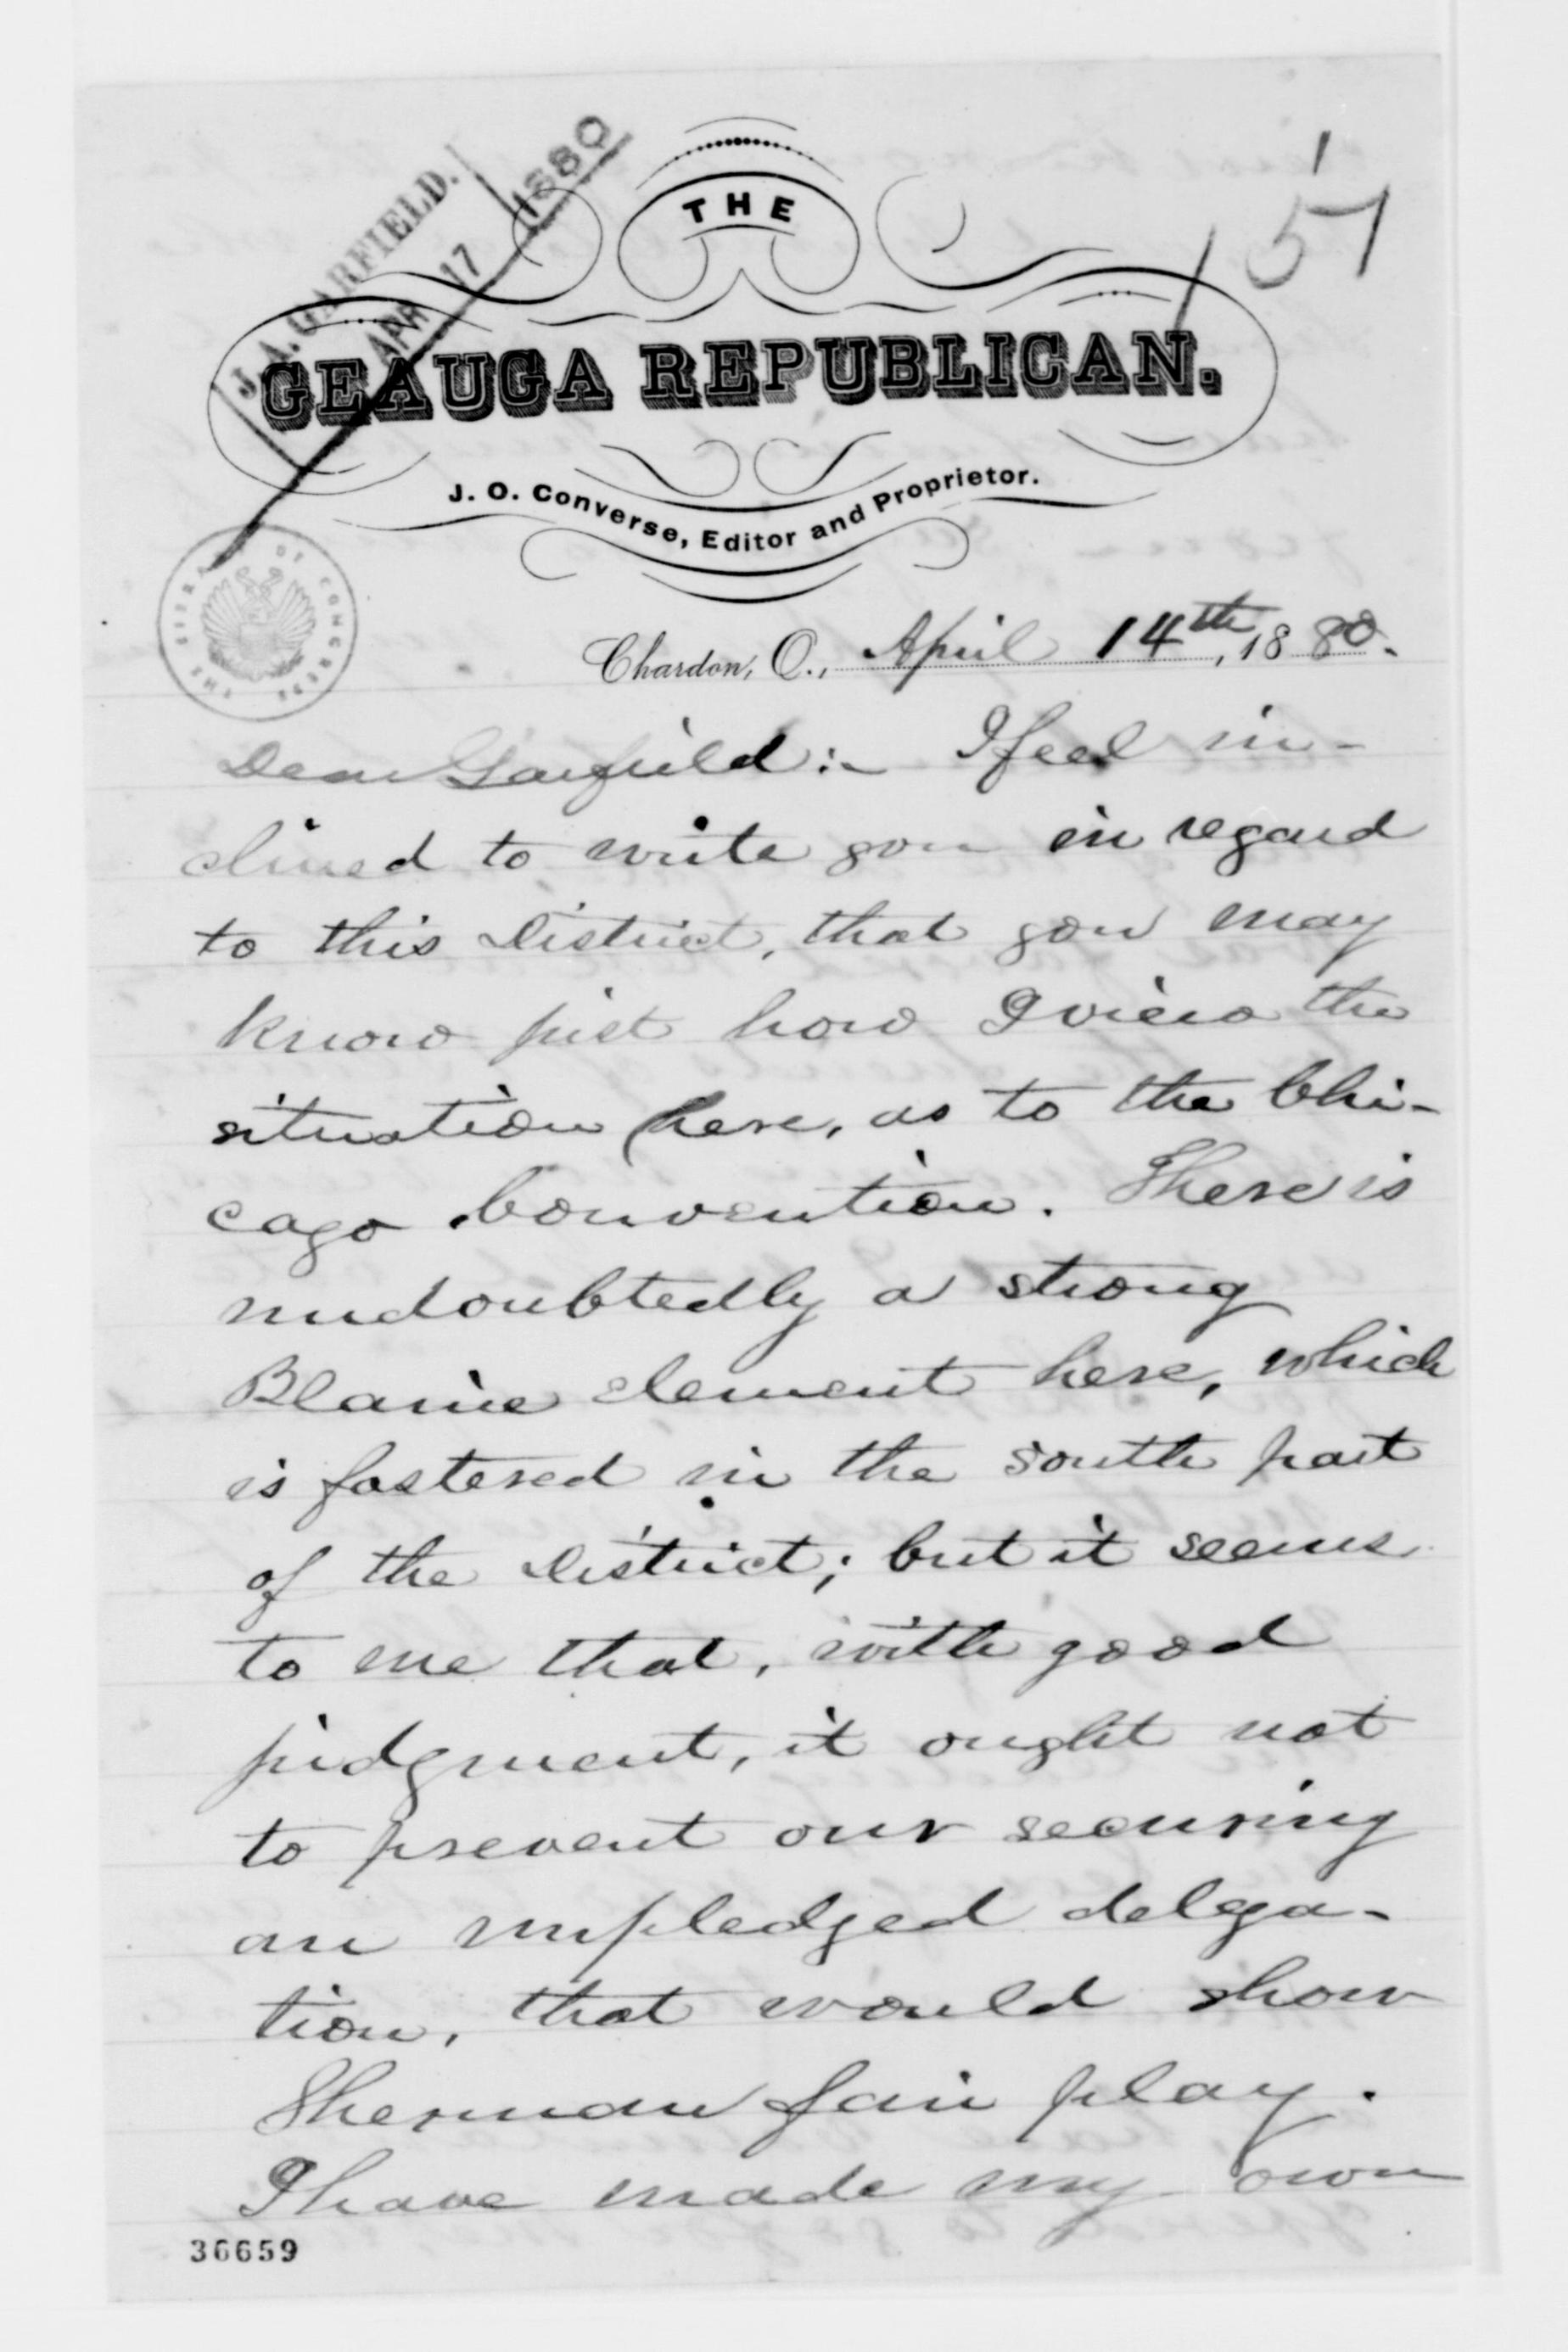 J. A. GARFIELD.
APR 17 1880
151
THE
GEAUGA REPUBLICAN.
J. O. Converse, Editor and Proprietor.
THE LIBRARY OF CONGRESS
Chardon, O., April 14th, 1880.
Dear Garfield:- I feel in-
clined to write you in regard
to this District, that you may
know just how I view the
situation here, as to the Chi-
cago Convention. There is
undoubtedly a strong
Blaine element here, which
is fostered in the south part
of the District; but it seems
to me that, with good
judgment, it ought not
to prevent our securing
an unpledged delega-
tion, that would show
Sherman fair play.
I have made my own
36659